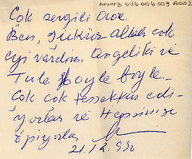 Çok sevgili Ovoe
Ben, Şükür allah çok
iyi vardım. Angeliki ve
Tule böyle böyle.
Çok çok teşekkür edi-
yorlar ve hepinizi
öpüyorlar
21.12.93